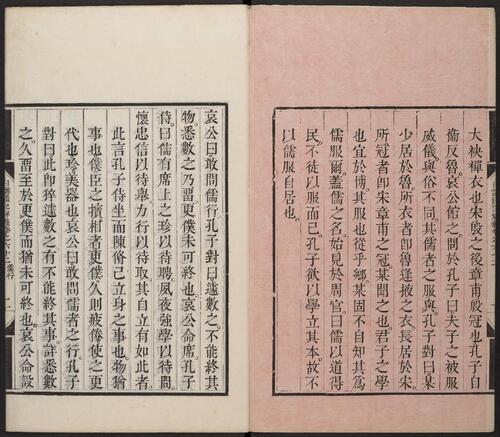 大袂襌衣也朱殷之後章甫殷冠也孔子自
衞反魯哀公館之問於孔子曰夫子之被服
威儀與俗不同其儒者之服與孔子對曰某
少居於魯所衣者卽魯逢掖之衣長居於朱
所冠者卽朱章甫之冠某聞之也君子之學
也宜於博其服也從乎鄉某固不自知其為
儒服爾蓋儒之名始見於周官曰儒以道得
民不徒以服而已孔子欲以學立其本故不
以儒服自居也
哀公曰敢問儒行孔子對曰遽數之不能終其
物悉數之乃畱更僕未可終也哀公命席孔子
侍曰儒有席上之珍以待聘夙夜強學以待問
懷忠信以待舉力行以待取其自立有如此者
此言孔子侍坐而陳脩己立身之事也物猶
事也僕臣之擯相者更僕久則疲倦使之更
代也珍美器也哀公曰敢問儒者之行孔子
對曰此卽猝遽數之有不能終其事詳悉數
之久畱至於更僕而猶未可終也哀公命設